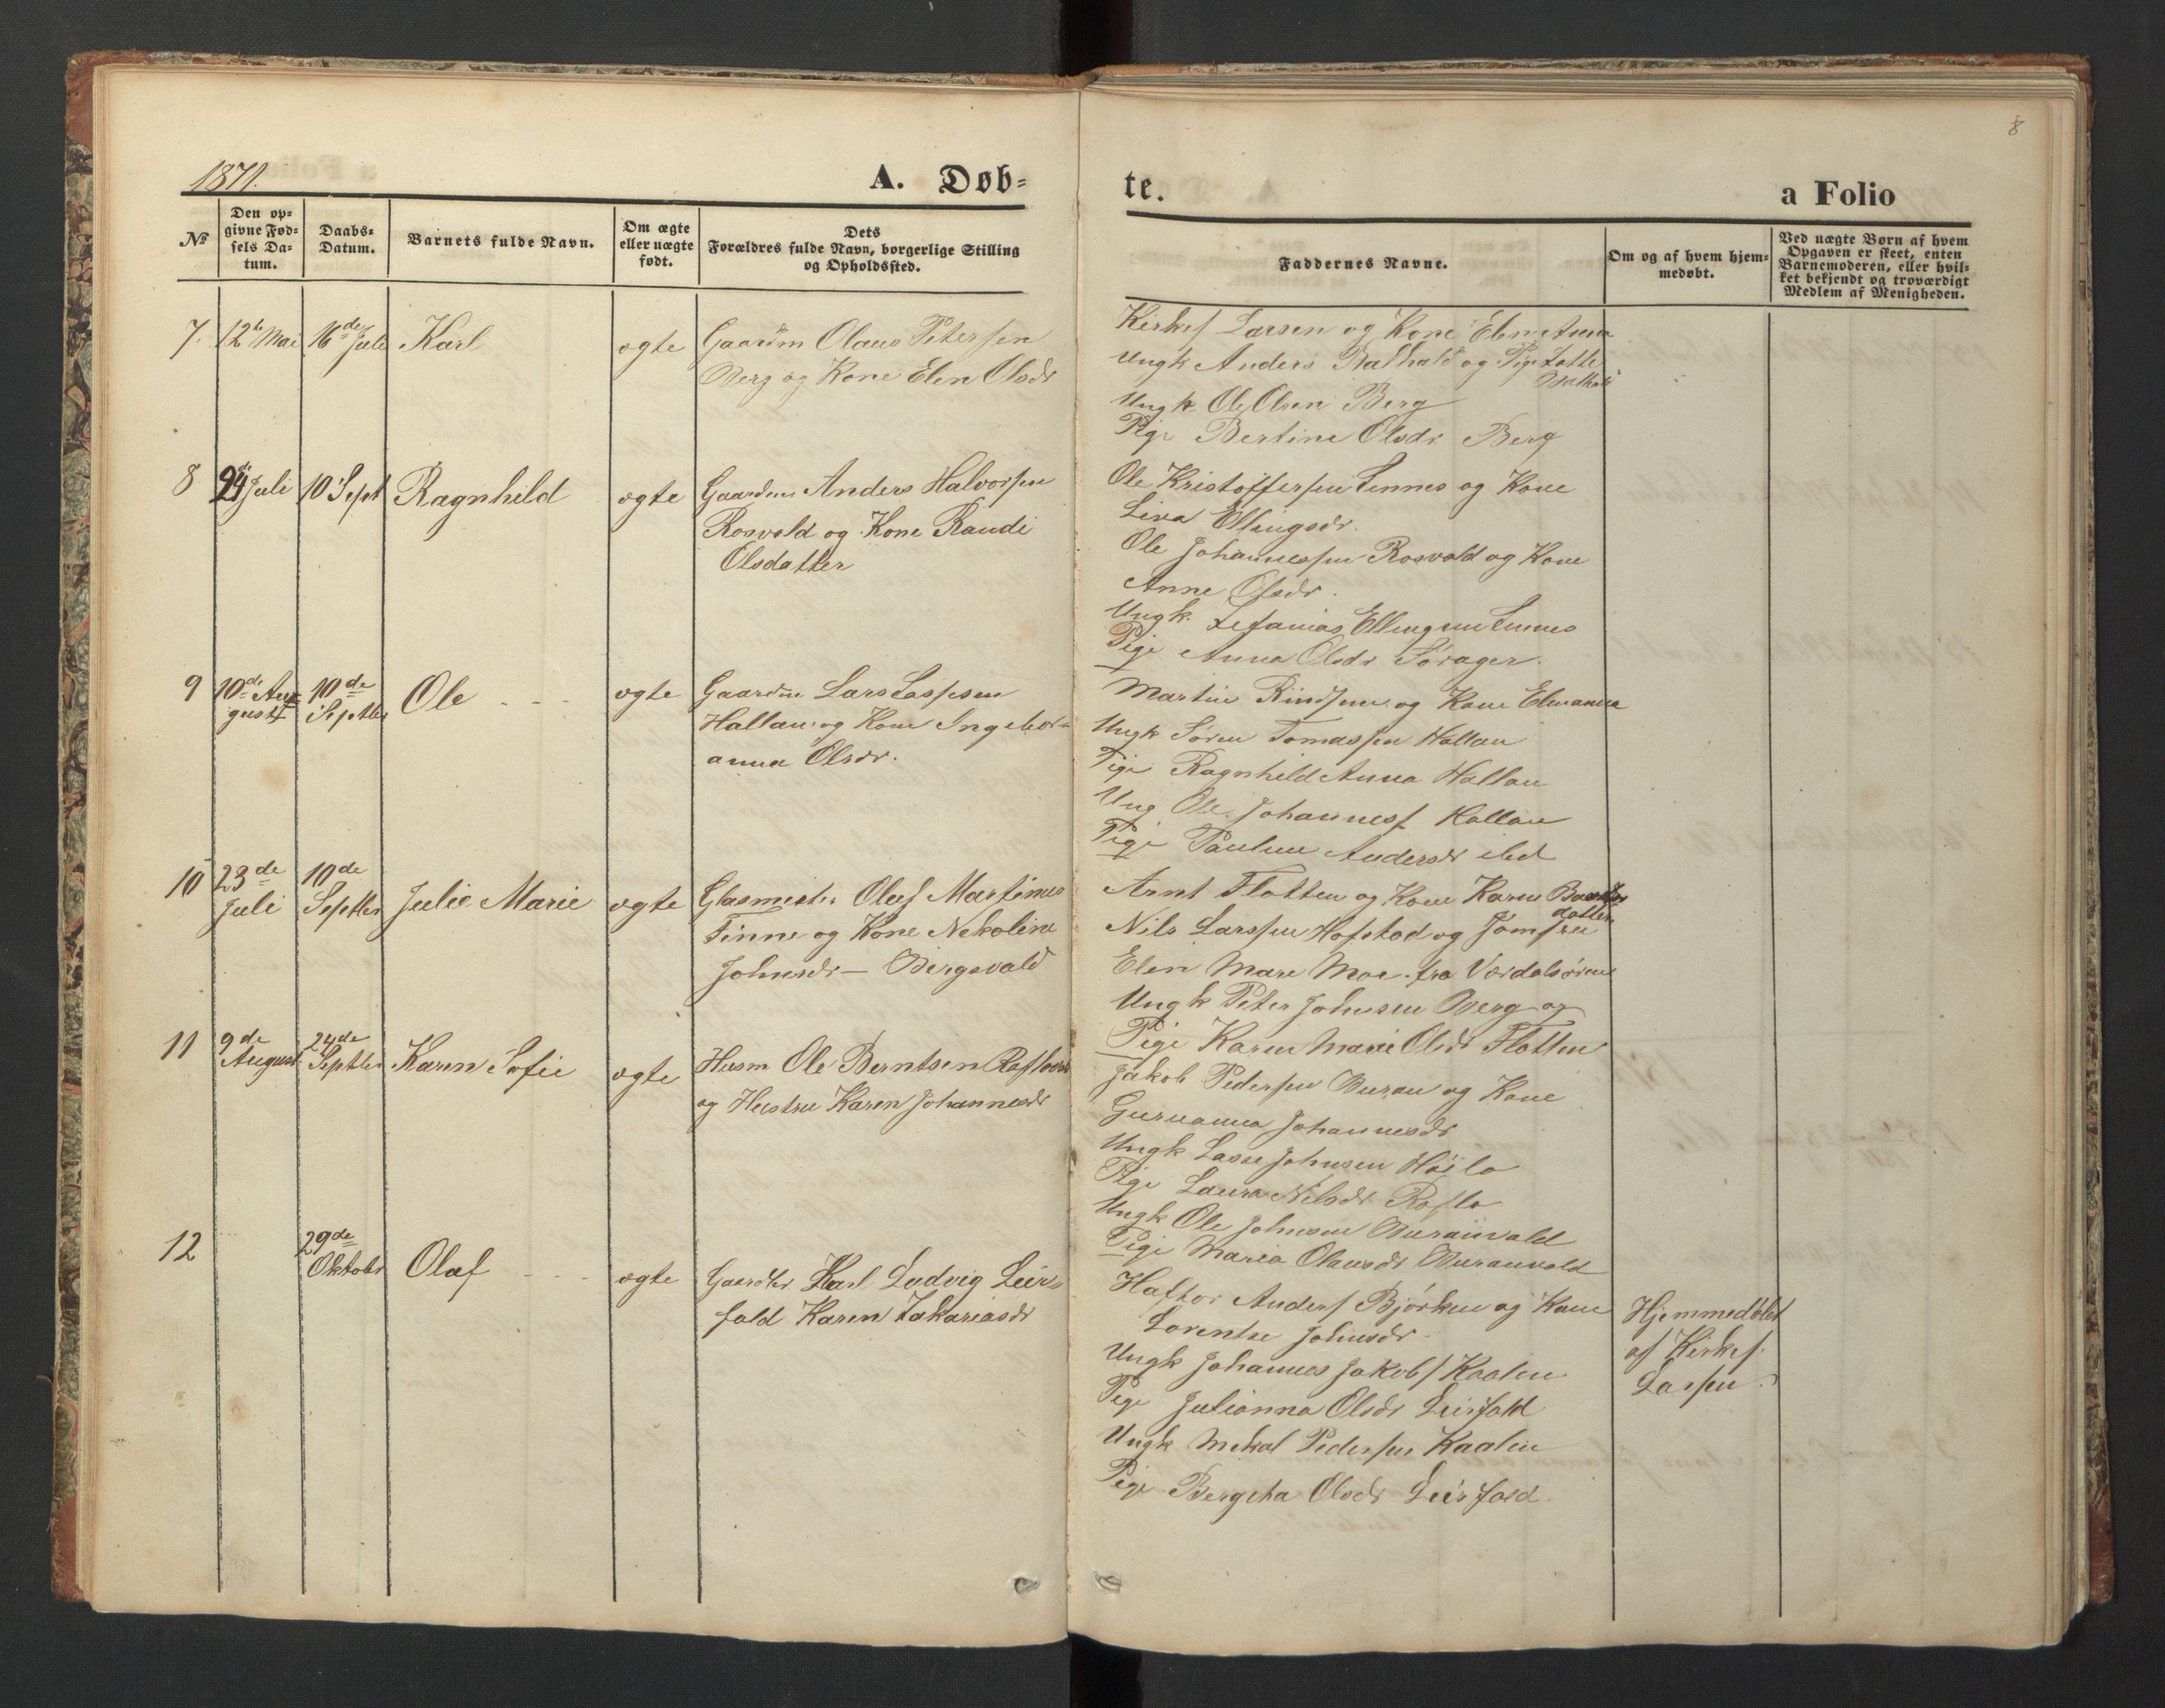 1871.
A. Døb=
№
Den op=
givne Fød=
sels Da=
tum.
Daabs=
Datum.
Barnets fulde Navn.
Om ægte
eller uægte
født.
Dets
Forældres fulde Navn, borgerlige Stilling
og Opholdssted.
7. 12te Mai 16de Juli Karl ægte Gaardm Olaus Petersen
Berg og Kone Elen Olsdr
8 24de Juli 10 Sept Ragnhild ægte Gaardm Anders Halvorsen
Rosvold og Kone Randi
Olsdatter
9 10de Au= 10de Ole ægte Gaardm Lars
gust Septbr Hallan og Kone Ingebor=
anna Olsdr.
10 23de 10de
Juli Septbr Julie Marie ægte Glasmester Oluf Martinus
Finne og Kone Nekoline
Johnsdr — Bergsvald
11 9de 24de
August Septbr Karen Sofie ægte Husm Ole Berntsen
og Hustru Karen Johannesdr
12 29de
Oktobr Olaf ægte Karl Ludvig Leir=
fald Karen Zakariasdr
te.
a Folio
8
Faddernes Navne.
Om og af hvem hjem=
medøbt.
Ved uægte Børn af hvem
Opgaven er skeet, enten
Barnemoderen, eller hvil=
ket bekjendt og troværdigt
Medlem af Menigheden.
Kirkes Larsen og Kone Elen Anna
Ungk Anders og Pige
Ungk Ole Olsen Berg
Pige Bertine Olsdr Berg
Ole Kristoffersen Lennes og Kone
Liva Ellingsdr.
Ole Johannessen Rosvold og Kone
Anne Olsdr.
Ungk. Zefanias Ellingsen Lennes
Pige Anna Olsdr Sørager.
Martin og Kone Elenanna
Ungk Søren Tomassen Hallan
Pige Ragnhild Anna Hallan
Ung Ole Johanness Hallan
Pige Pauline Andersdr ibd
Arnt Flotten og Kone Karen
datter
Nils Larssen Hofstad og Jomfru
Elen Mare Moe fra Værdalsøren
Ungk Peter Johnsen Berg og
Pige Karen Marie Olsdr Flotten
Jakob Pedersen Buran og Kone
Guruanna Johannesdr
Ungk Lasse Johnsen Høilo
Pige Laura Nilsdr Roflo
Ungk Ole Johnsen Buranvald
Pige Maria Olausdr Buranvald
Haftor Anders Bjørken og Kone
Lorentse Johnsdr.
Hjemmedøbt
af Kirkes.
Larsen.
Ungk Johannes Jakobs Kaalen
Pige Julianna Olsdr Leirfald
Ungk Mekal Pedersen Kaalen
Pige Bergitha Olsdr Leirfald.